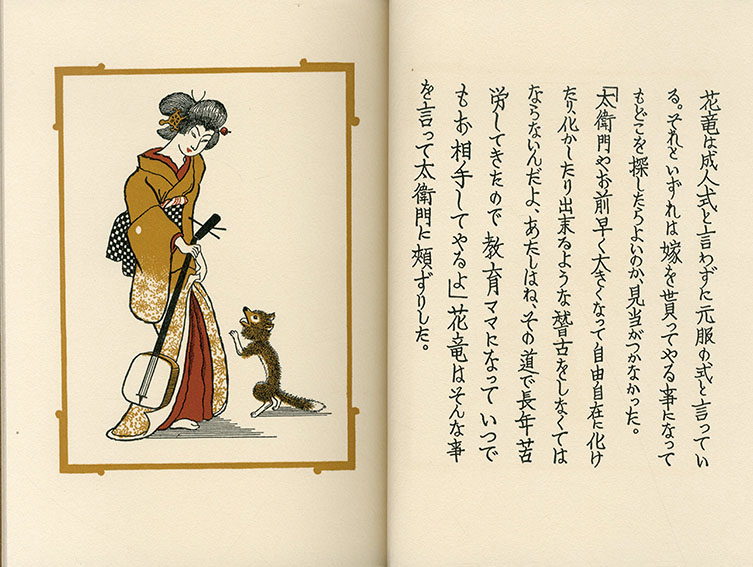 花竜は成人式と言わずに元服の式と言ってい
る。それといずれは嫁を貰ってやる事になって
もどこを探したらよいのか、見当がつかなかった。
「太衛門やお前早く大きくなって自由自在に化け
たり化かしたり出来るような稽古をしなくては
ならないんだよ、あたしはね、その道で長年苦
労してきたので教育ママになっていつで
もお相手してやるよ」花竜はそんな事
を言って太衛門に頰ずりした。